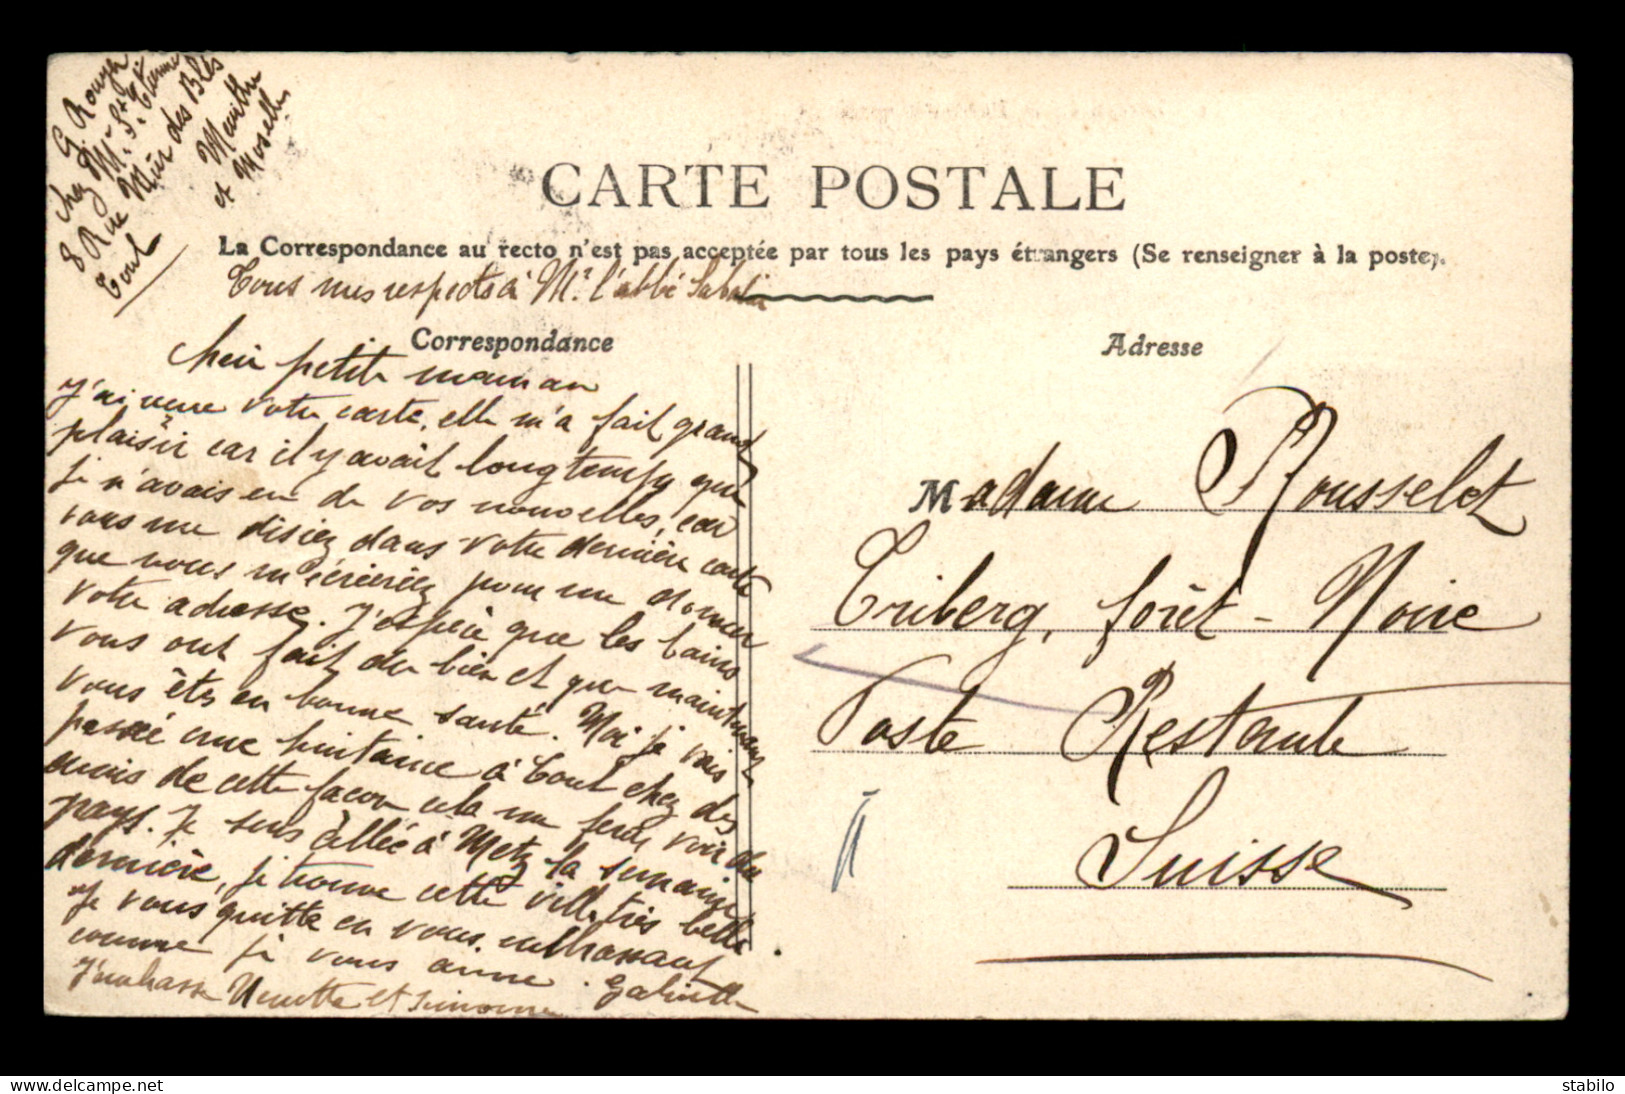 G. Rouyer
chez Mr St Etienne
8 Rue Mûr des Blés
Toul
Meurthe
et Moselle
CARTE POSTALE
La Correspondance au recto n'est pas acceptée par tous les pays étrangers (Se renseigner à la poste).
Tous mes respects à Mr. l'abbé
Correspondance
Adresse
petite maman
J'ai reçue votre carte, elle m'a fait grand
plaisir car il y avait longtemps que
je n'avais eu de vos nouvelles, car
vous me disiez dans votre dernière carte
que vous m'écririez pour me donner
votre adresse. J'espère que les bains
vous ont fait du bien et que maintenant
vous êtes en bonne santé. Moi je vais
passé une huitaine à Toul chez des
amis de cette façon cela me fera voir du
pays. Je suis allée à Metz la semaine
dernière, je trouve cette ville très belle.
Je vous quitte en vous embrassant
comme je vous aime. Gabrielle
J'embrasse Ninette et Simonne
Madame Rousselot
Triberg, forêt-Noire
Poste Restante
Suisse
delcampe.net
stabilo